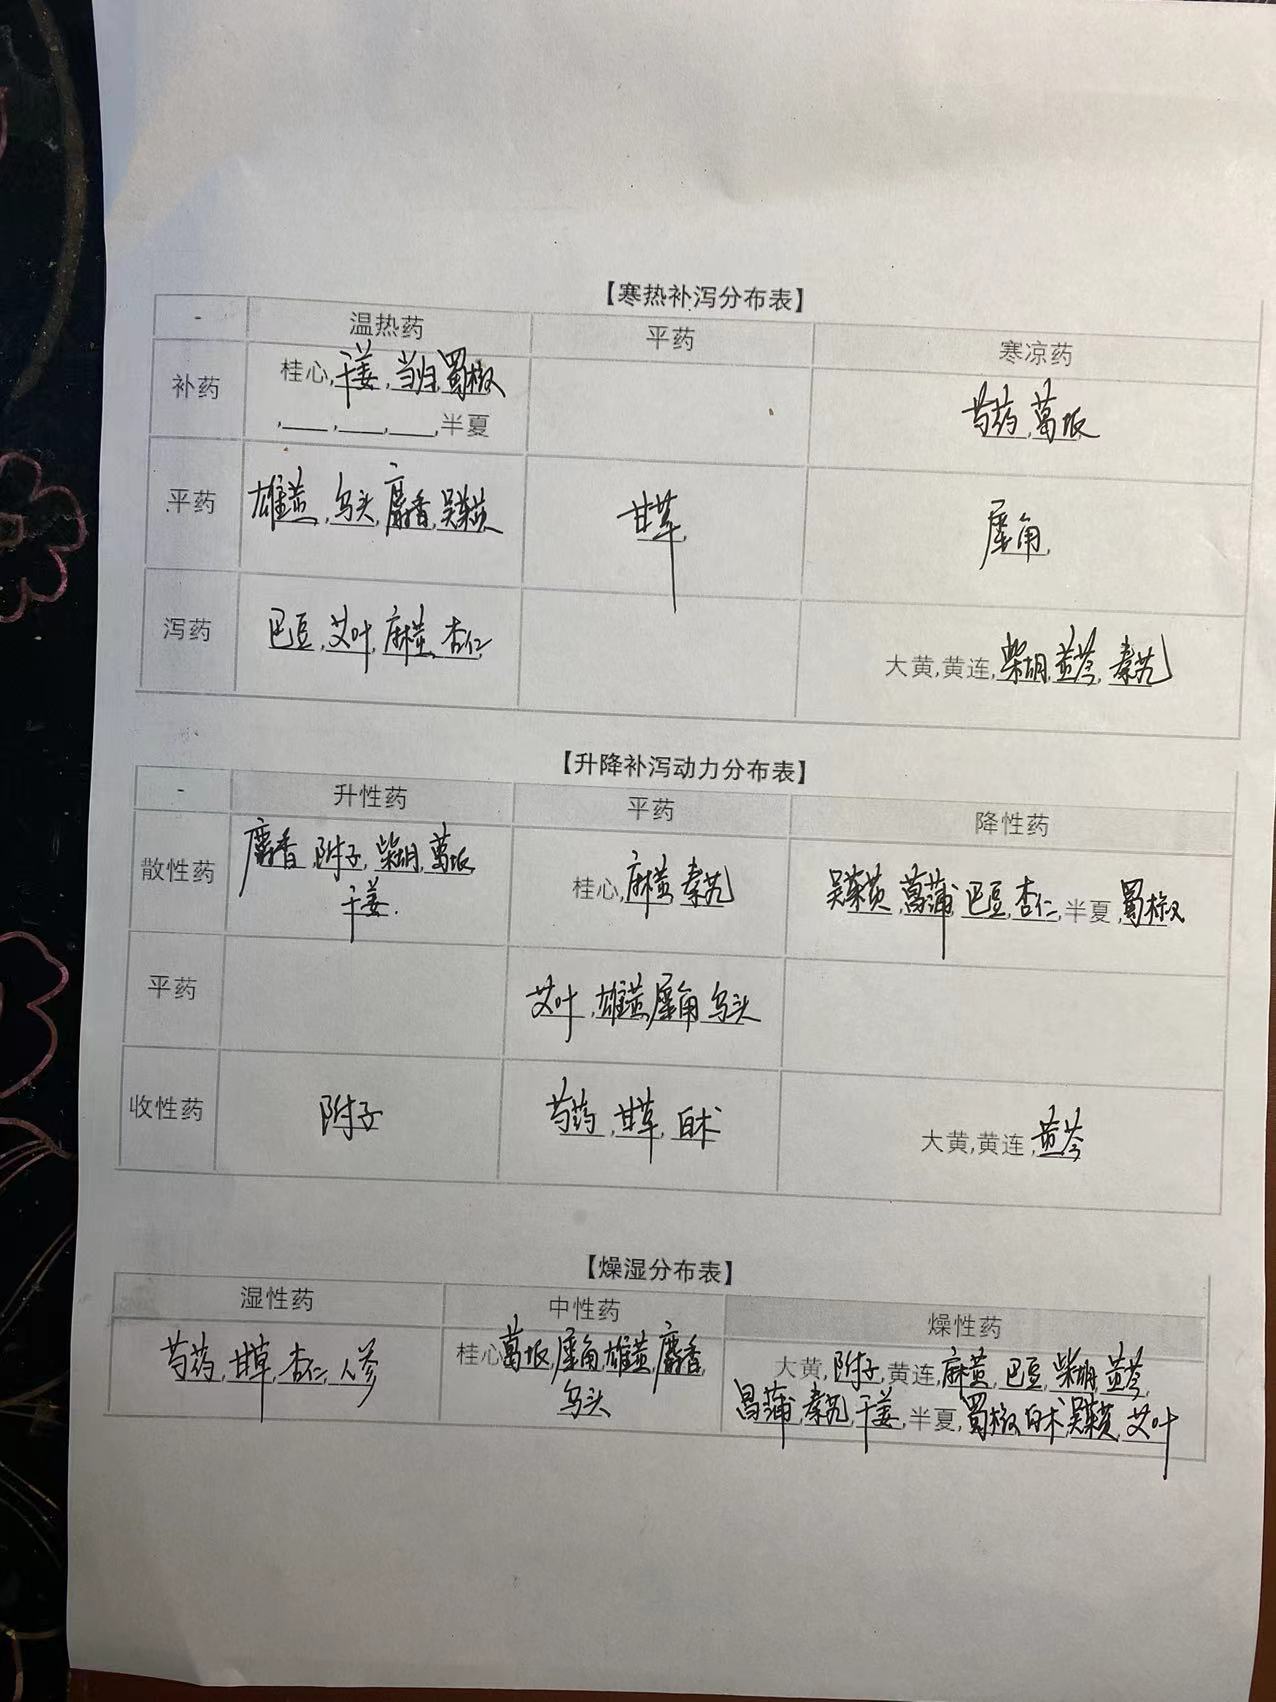 【寒热补泻分布表】
- 温热药 平药 寒凉药
补药 桂心,干姜,当归,蜀椒 芍药,葛根
,___,___,___,半夏
平药 雄黄,乌头,麝香,吴茱萸 甘草, 犀角,
泻药 巴豆,艾叶,麻黄,杏仁 大黄,黄连,柴胡,黄芩,秦艽
【升降补泻动力分布表】
- 升性药 平药 降性药
散性药 麝香,附子,柴胡,葛根 桂心,麻黄,秦艽 吴茱萸,菖蒲,巴豆,杏仁,半夏,蜀椒
干姜.
平药 艾叶,雄黄,犀角,乌头
收性药 附子 芍药,甘草,白术 大黄,黄连,黄芩
【燥湿分布表】
湿性药 中性药 燥性药
芍药,甘草,杏仁,人参 桂心,葛根,犀角,雄黄,麝香, 大黄,附子,黄连,麻黄,巴豆,柴胡,黄芩,
乌头 菖蒲,秦艽,干姜,半夏,蜀椒,白术,吴茱萸,艾叶